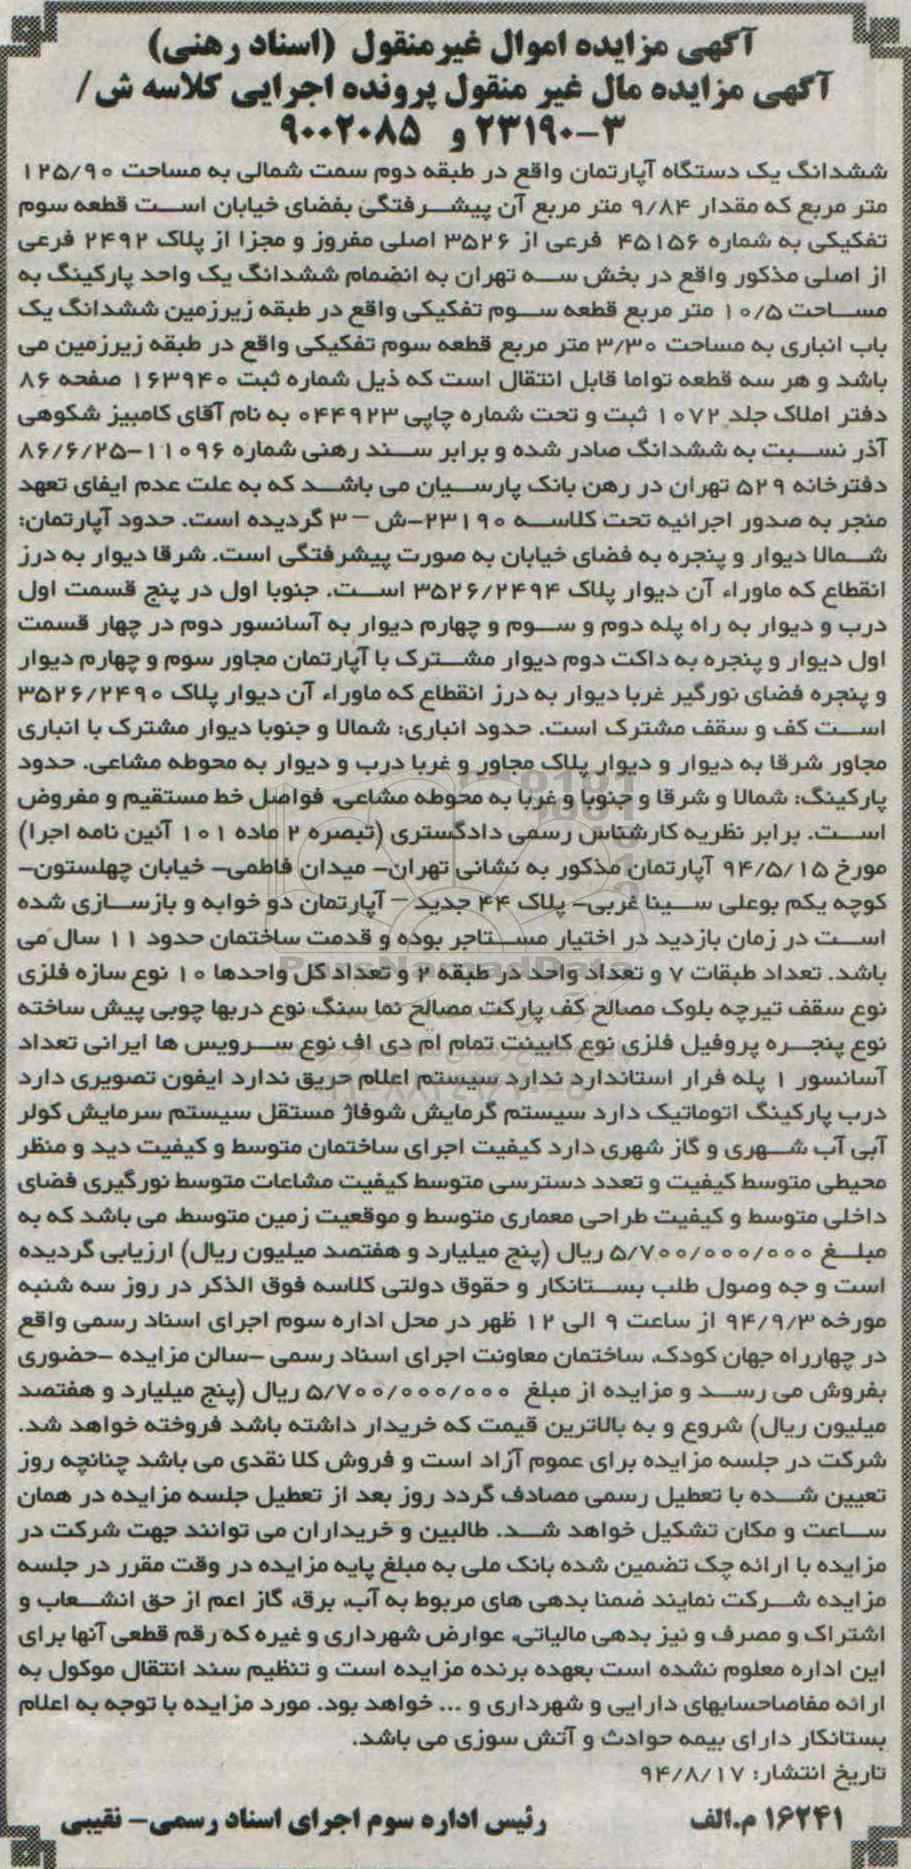 آگهی مزایده اموال غیرمنقول (اسناد رهنی)
آگهی مزایده مال غیر منقول پرونده اجرایی کلاسه ش/
۳-۲۳۱۹۰ و ۹۰۰۲۰۸۵
ششدانگ یک دستگاه آپارتمان واقع در طبقه دوم سمت شمالی به مساحت ۱۲۵/۹۰
متر مربع که مقدار ۹/۸۴ متر مربع آن پیشرفتگی بفضای خیابان است قطعه سوم
تفکیکی به شماره ۴۵۱۵۶ فرعی از ۳۵۲۶ اصلی مفروز و مجزا از پلاک ۲۴۹۲ فرعی
از اصلی مذکور واقع در بخش سه تهران به انضمام ششدانگ یک واحد پارکینگ به
مساحت ۱۰/۵ متر مربع قطعه سوم تفکیکی واقع در طبقه زیرزمین ششدانگ یک
باب انباری به مساحت ۳/۳۰ متر مربع قطعه سوم تفکیکی واقع در طبقه زیرزمین می
باشد و هر سه قطعه تواما قابل انتقال است که ذیل شماره ثبت ۱۶۳۹۴۰ صفحه ۸۶
دفتر املاک جلد ۱۰۷۲ ثبت و تحت شماره چاپی ۰۴۴۹۲۳ به نام آقای کامبیز شکوهی
آذر نسبت به ششدانگ صادر شده و برابر سند رهنی شماره ۱۱۰۹۶-۸۶/۶/۲۵
دفترخانه ۵۲۹ تهران در رهن بانک پارسیان می باشد که به علت عدم ایفای تعهد
منجر به صدور اجرائیه تحت کلاسه ۲۳۱۹۰-ش-۳ گردیده است. حدود آپارتمان:
شمالا دیوار و پنجره به فضای خیابان به صورت پیشرفتگی است. شرقا دیوار به درز
انقطاع که ماوراء آن دیوار پلاک ۳۵۲۶/۲۴۹۴ است. جنوبا اول در پنج قسمت اول
درب و دیوار به راه پله دوم و سوم و چهارم دیوار به آسانسور دوم در چهار قسمت
اول دیوار و پنجره به داکت دوم دیوار مشترک با آپارتمان مجاور سوم و چهارم دیوار
و پنجره فضای نورگیر غربا دیوار به درز انقطاع که ماوراء آن دیوار پلاک ۳۵۲۶/۲۴۹۰
است کف و سقف مشترک است. حدود انباری: شمالا و جنوبا دیوار مشترک با انباری
مجاور شرقا به دیوار و دیوار پلاک مجاور و غربا درب و دیوار به محوطه مشاعی. حدود
پارکینگ: شمالا و شرقا و جنوبا و غربا به محوطه مشاعی، فواصل خط مستقیم و مفروض
است. برابر نظریه کارشناس رسمی دادگستری (تبصره ۲ ماده ۱۰۱ آئین نامه اجرا)
مورخ ۹۴/۵/۱۵ آپارتمان مذکور به نشانی تهران- میدان فاطمی- خیابان چهلستون-
کوچه یکم بوعلی سینا غربی- پلاک ۴۴ جدید - آپارتمان دو خوابه و بازسازی شده
است در زمان بازدید در اختیار مستاجر بوده و قدمت ساختمان حدود ۱۱ سال می
باشد. تعداد طبقات ۷ و تعداد واحد در طبقه ۲ و تعداد کل واحدها ۱۰ نوع سازه فلزی
نوع سقف تیرچه بلوک مصالح کف پارکت مصالح نما سنگ نوع دربها چوبی پیش ساخته
نوع پنجره پروفیل فلزی نوع کابینت تمام ام دی اف نوع سرویس ها ایرانی تعداد
آسانسور ۱ پله فرار استاندارد ندارد سیستم اعلام حریق ندارد ایفون تصویری دارد
درب پارکینگ اتوماتیک دارد سیستم گرمایش شوفاژ مستقل سیستم سرمایش کولر
آبی آب شهری و گاز شهری دارد کیفیت اجرای ساختمان متوسط و کیفیت دید و منظر
محیطی متوسط کیفیت و تعدد دسترسی متوسط کیفیت مشاعات متوسط نورگیری فضای
داخلی متوسط و کیفیت طراحی معماری متوسط و موقعیت زمین متوسط، می باشد که به
مبلغ ۵/۷۰۰/۰۰۰/۰۰۰ ریال (پنج میلیارد و هفتصد میلیون ریال) ارزیابی گردیده
است و جه وصول طلب بستانکار و حقوق دولتی کلاسه فوق الذکر در روز سه شنبه
مورخه ۹۴/۹/۳ از ساعت ۹ الی ۱۲ ظهر در محل اداره سوم اجرای اسناد رسمی واقع
در چهارراه جهان کودک، ساختمان معاونت اجرای اسناد رسمی -سالن مزایده -حضوری
بفروش می رسد و مزایده از مبلغ ۵/۷۰۰/۰۰۰/۰۰۰ ریال (پنج میلیارد و هفتصد
میلیون ریال) شروع و به بالاترین قیمت که خریدار داشته باشد فروخته خواهد شد.
شرکت در جلسه مزایده برای عموم آزاد است و فروش کلا نقدی می باشد چنانچه روز
تعیین شده با تعطیل رسمی مصادف گردد روز بعد از تعطیل جلسه مزایده در همان
ساعت و مکان تشکیل خواهد شد. طالبین و خریداران می توانند جهت شرکت در
مزایده با ارائه چک تضمین شده بانک ملی به مبلغ پایه مزایده در وقت مقرر در جلسه
مزایده شرکت نمایند ضمنا بدهی های مربوط به آب، برق، گاز اعم از حق انشعاب و
اشتراک و مصرف و نیز بدهی مالیاتی، عوارض شهرداری و غیره که رقم قطعی آنها برای
این اداره معلوم نشده است بعهده برنده مزایده است و تنظیم سند انتقال موکول به
ارائه مفاصاحسابهای دارایی و شهرداری و ... خواهد بود. مورد مزایده با توجه به اعلام
بستانکار دارای بیمه حوادث و آتش سوزی می باشد.
تاریخ انتشار: ۹۴/۸/۱۷
۱۶۲۴۱ م.الف رئیس اداره سوم اجرای اسناد رسمی- نقیبی